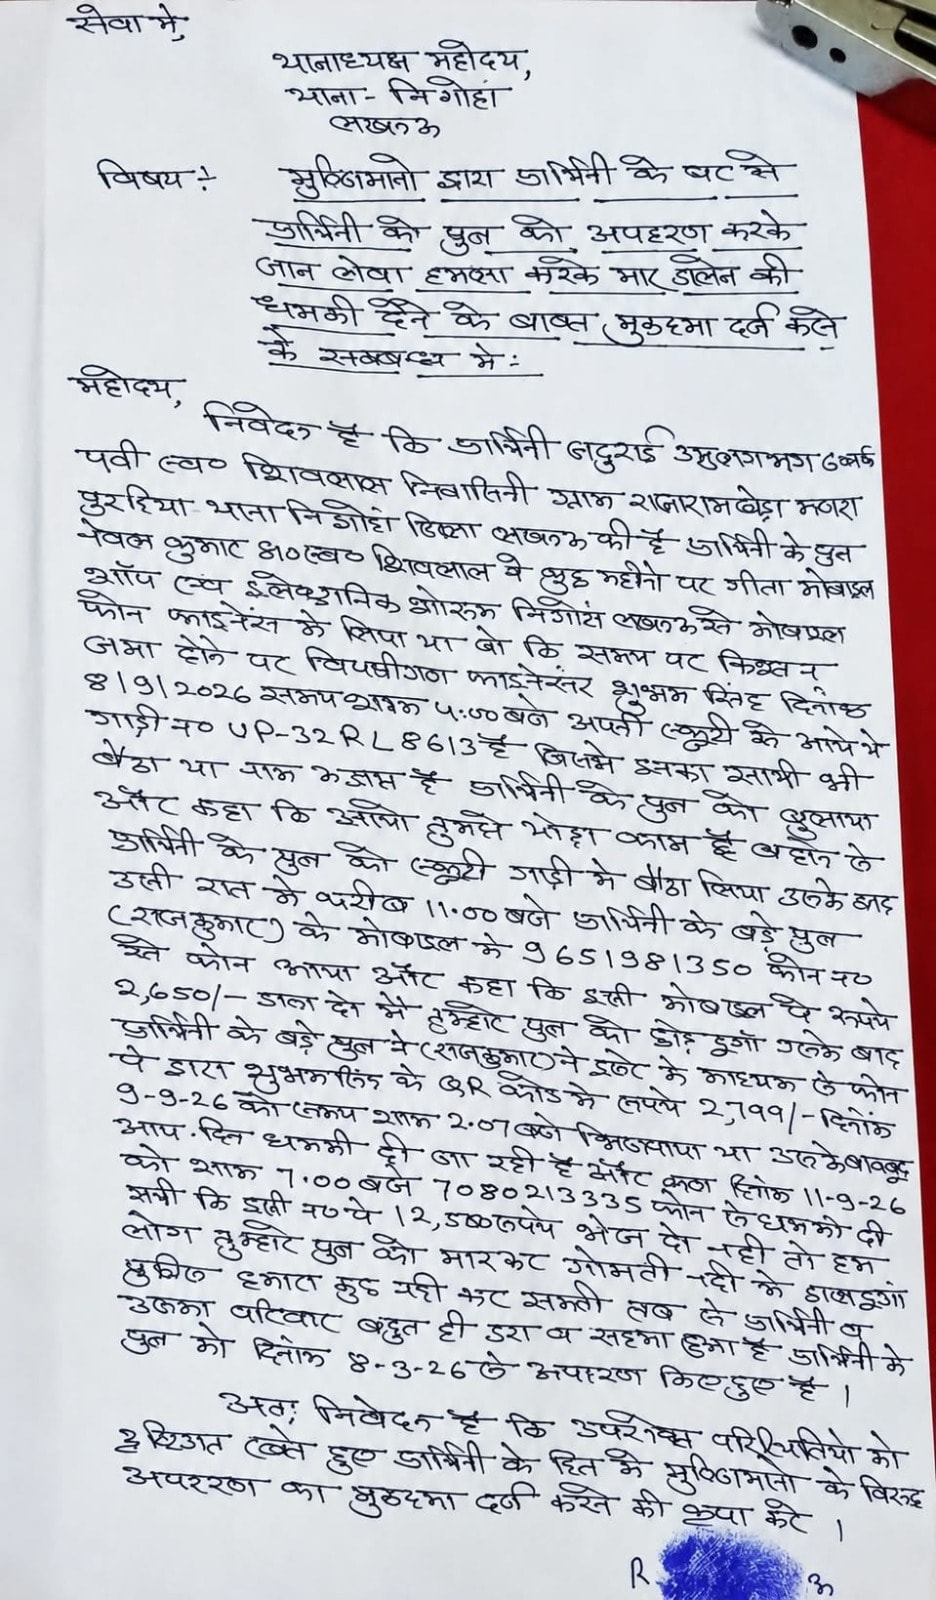 सेवा मे,
थानाध्यक्ष महोदय,
थाना - निगोहां
लखनऊ
विषय :- मुल्जिमानो द्वारा प्रार्थिनी के घर से
प्रार्थिनी को पुत्र को, अपहरण करके
जान लेवा हमला करके मार डालेन की
धमकी देने के बाबत, मुकदमा दर्ज करने
के सबबन्ध मे :-
महोदय,
निवेदन है कि प्रार्थिनी उम्र लगभग
पत्नी स्व० शिवलाल निवासिनी ग्राम राजारामखेड़ा मजरा
पुरहिया थाना निगोहां जिला लखनऊ की है प्रार्थिनी के पुत्र
कुमार S/० स्व० शिवलाल ने कुछ महीनो पर गीता मोबाइल
शॉप एवं इलेक्ट्रानिक शोरूम निगोहां लखनऊ से मोबाइल
फोन फाइनेंस मे लिया था जो कि समय पर किश्त न
जमा होने पर विपक्षीगण फाइनेंसर शुभम सिंह दिनांक
8/9/2026 समय शाम 4:00 बजे अपनी स्कूटी से आये थे
गाड़ी न० UP-32RL8613 है जिसमे इनका साथी भी
बैठा था नाम है प्रार्थिनी के पुत्र को बुलाया
और कहा कि आओ तुमसे थोड़ा काम है बहाने से
प्रार्थिनी के पुत्र को स्कूटी गाड़ी मे बैठा लिया उसके बाद
उसी रात मे करीब 11.00 बजे प्रार्थिनी के बड़े पुत्र
(राजकुमार) के मोबाइल मे 9651981350 फोन न०
से फोन आया और कहा कि इसी मोबाइल पे रूपये
2,650/- डाल दो मै तुम्हारे पुत्र को छोड़ दूगाँ उसके बाद
प्रार्थिनी के बड़े पुत्र ने (राजकुमार) ने के माध्यम से फोन
पे द्वारा शुभम सिंह के QR कोड मे रूपये 2,799/- दिनांक
9-9-26 को समय शाम 2.07 बजे भिजवाया था उसके बावजूद
आए दिन धमकी दी जा रही है और कल दिनांक 11-9-26
को शाम 7.00 बजे 7080213335 फोन से धमकी दी
कि इसी न० पे 12,500 रूपये भेज दो नही तो हम
लोग तुम्हारे पुत्र को मारकर गोमती नदी मे डाल दूगां
पुलिस हमारा कुछ नही कर सकती तब से प्रार्थिनी व
उसका परिवार बहुत ही डरा व सहमा हुआ है प्रार्थिनी के
पुत्र को दिनांक 8-3-26 से अपहरण किए हुए है ।
अतः निवेदन है कि उपरोक्त परिस्थितियो को
दृष्टिगत रखते हुए प्रार्थिनी के हित मे मुल्जिमानो के विरुद्ध
अपहरण का मुकदमा दर्ज करने की कृपा करे ।
R